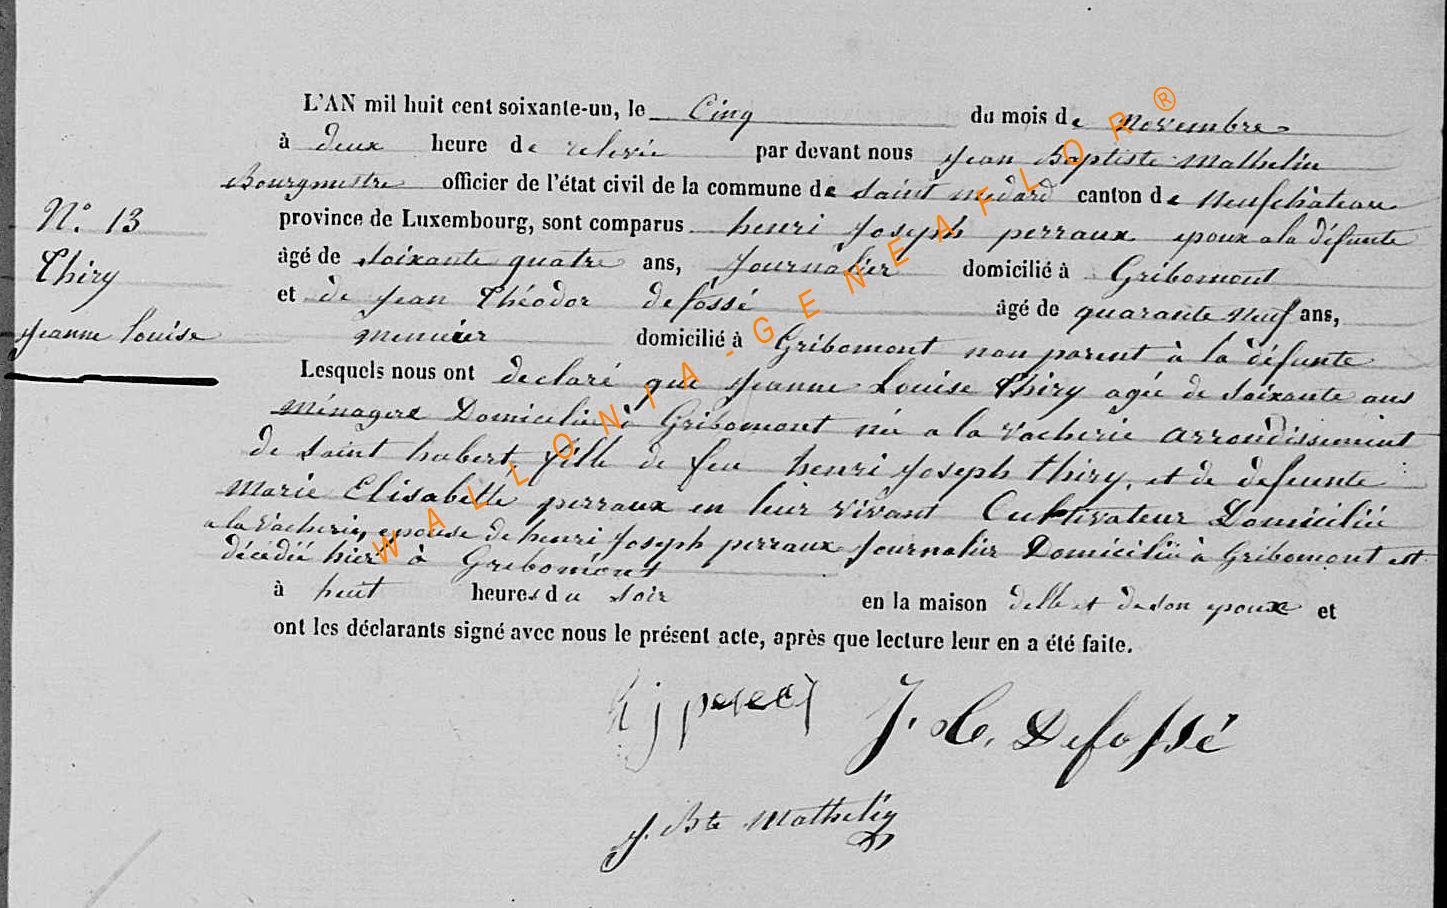 L'AN mil huit cent soixante-un, le Cinq du mois de novembre
à deux heure de relevée par devant nous Jean Baptiste Mathelin
Bourgmestre officier de l'état civil de la commune de Saint medard canton de Neufchateau
N.° 13
province de Luxembourg, sont comparus henri Joseph perraux epoux a la défunte
Thiry
âgé de soixante quatre ans, Journalier domicilié à Gribomont
et de Jean Théodor defossé âgé de quarante neuf ans,
Jeanne Louise
menuier domicilié à Gribomont non parent à la défunte
Lesquels nous ont declaré que Jeanne Louise Thiry agée de soixante ans
ménagere Domiciliée à Gribomont née a la vacherie arrondissement
de Saint hubert, fille de feu henri Joseph thiry, et de defeunte
Marie Elisabette perraux en leur vivant Cultivateur Domicilié
a la vacherie, epouse de henri Joseph perraux Journalier Domicilié à Gribomont est
décédée hier à Gribomont
à huit heures du soir en la maison delle et de son epoux et
ont les déclarants signé avec nous le présent acte, après que lecture leur en a été faite.
h j J. T. Defossé
J. Bte Mathelin
WALLONIA-GENEAFLOR®